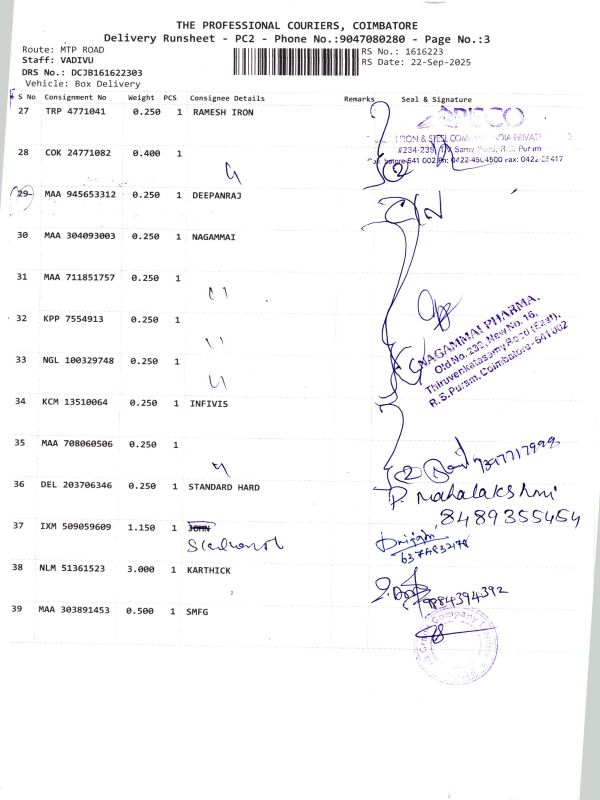 THE PROFESSIONAL COURIERS, COIMBATORE
Delivery Runsheet - PC2 - Phone No.:9047080280 - Page No.:3
Route: MTP ROAD
RS No.: 1616223
Staff: VADIVU
RS Date: 22-Sep-2025
DRS No.: DCJB161622303
Vehicle: Box Delivery
S No Consignment No Weight PCS Consignee Details Remarks Seal & Signature
27 TRP 4771041 0.250 1 RAMESH IRON
28 COK 24771082 0.400 1
#234-235, Samy Road, R.S. Puram
29 MAA 945653312 0.250 1 DEEPANRAJ
30 MAA 304093003 0.250 1 NAGAMMAI
31 MAA 711851757 0.250 1
32 KPP 7554913 0.250 1
33 NGL 100329748 0.250 1
NAGAMMAI PHARMA,
Old No. 232, New No. 16,
Thiruvenkatasamy Road (East),
R.S. Puram, Coimbatore - 641 002
34 KCM 13510064 0.250 1 INFIVIS
35 MAA 708060506 0.250 1
36 DEL 203706346 0.250 1 STANDARD HARD
P. Mahalakshmi
8489355454
37 IXM 509059609 1.150 1 JOHN
38 NLM 51361523 3.000 1 KARTHICK
9884394392
39 MAA 303891453 0.500 1 SMFG